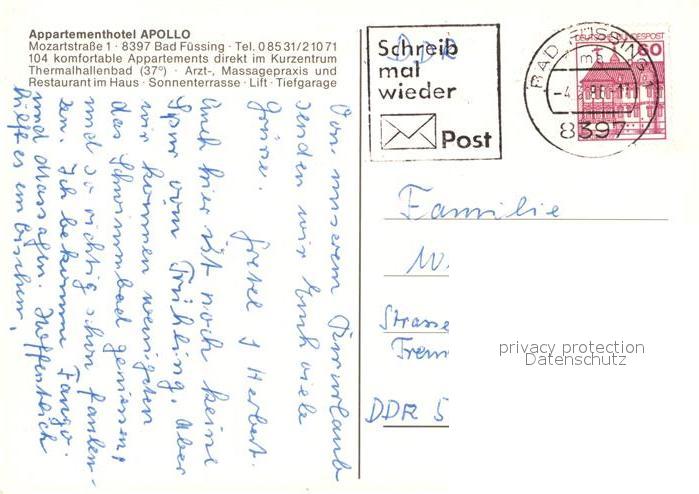 Appartementhotel APOLLO
Mozartstraße 1 · 8397 Bad Füssing · Tel. 08531/21071
104 komfortable Appartements direkt im Kurzentrum
Thermalhallenbad (37°) · Arzt-, Massagepraxis und
Restaurant im Haus · Sonnenterrasse · Lift · Tiefgarage
Von unserem Kururlaub
senden wir Euch viele
Grüsse. Gretel & Herbert.
Auch hier ist noch keine
Spur vom Frühling. Aber
wir können wenigsten
das Schwimmbad geniesen,
und so richtig schön faulen-
zen. Ich bekomme Fango.
und Massagen. Hoffentlich
hilft es ein bischen.
DDR
Schreib
mal
wieder
Post
DEUTSCHE BUNDESPOST
60
BAD FÜSSING 1
ma
8397
Familie
W.
Strasse
DDR 5
privacy protection
Datenschutz